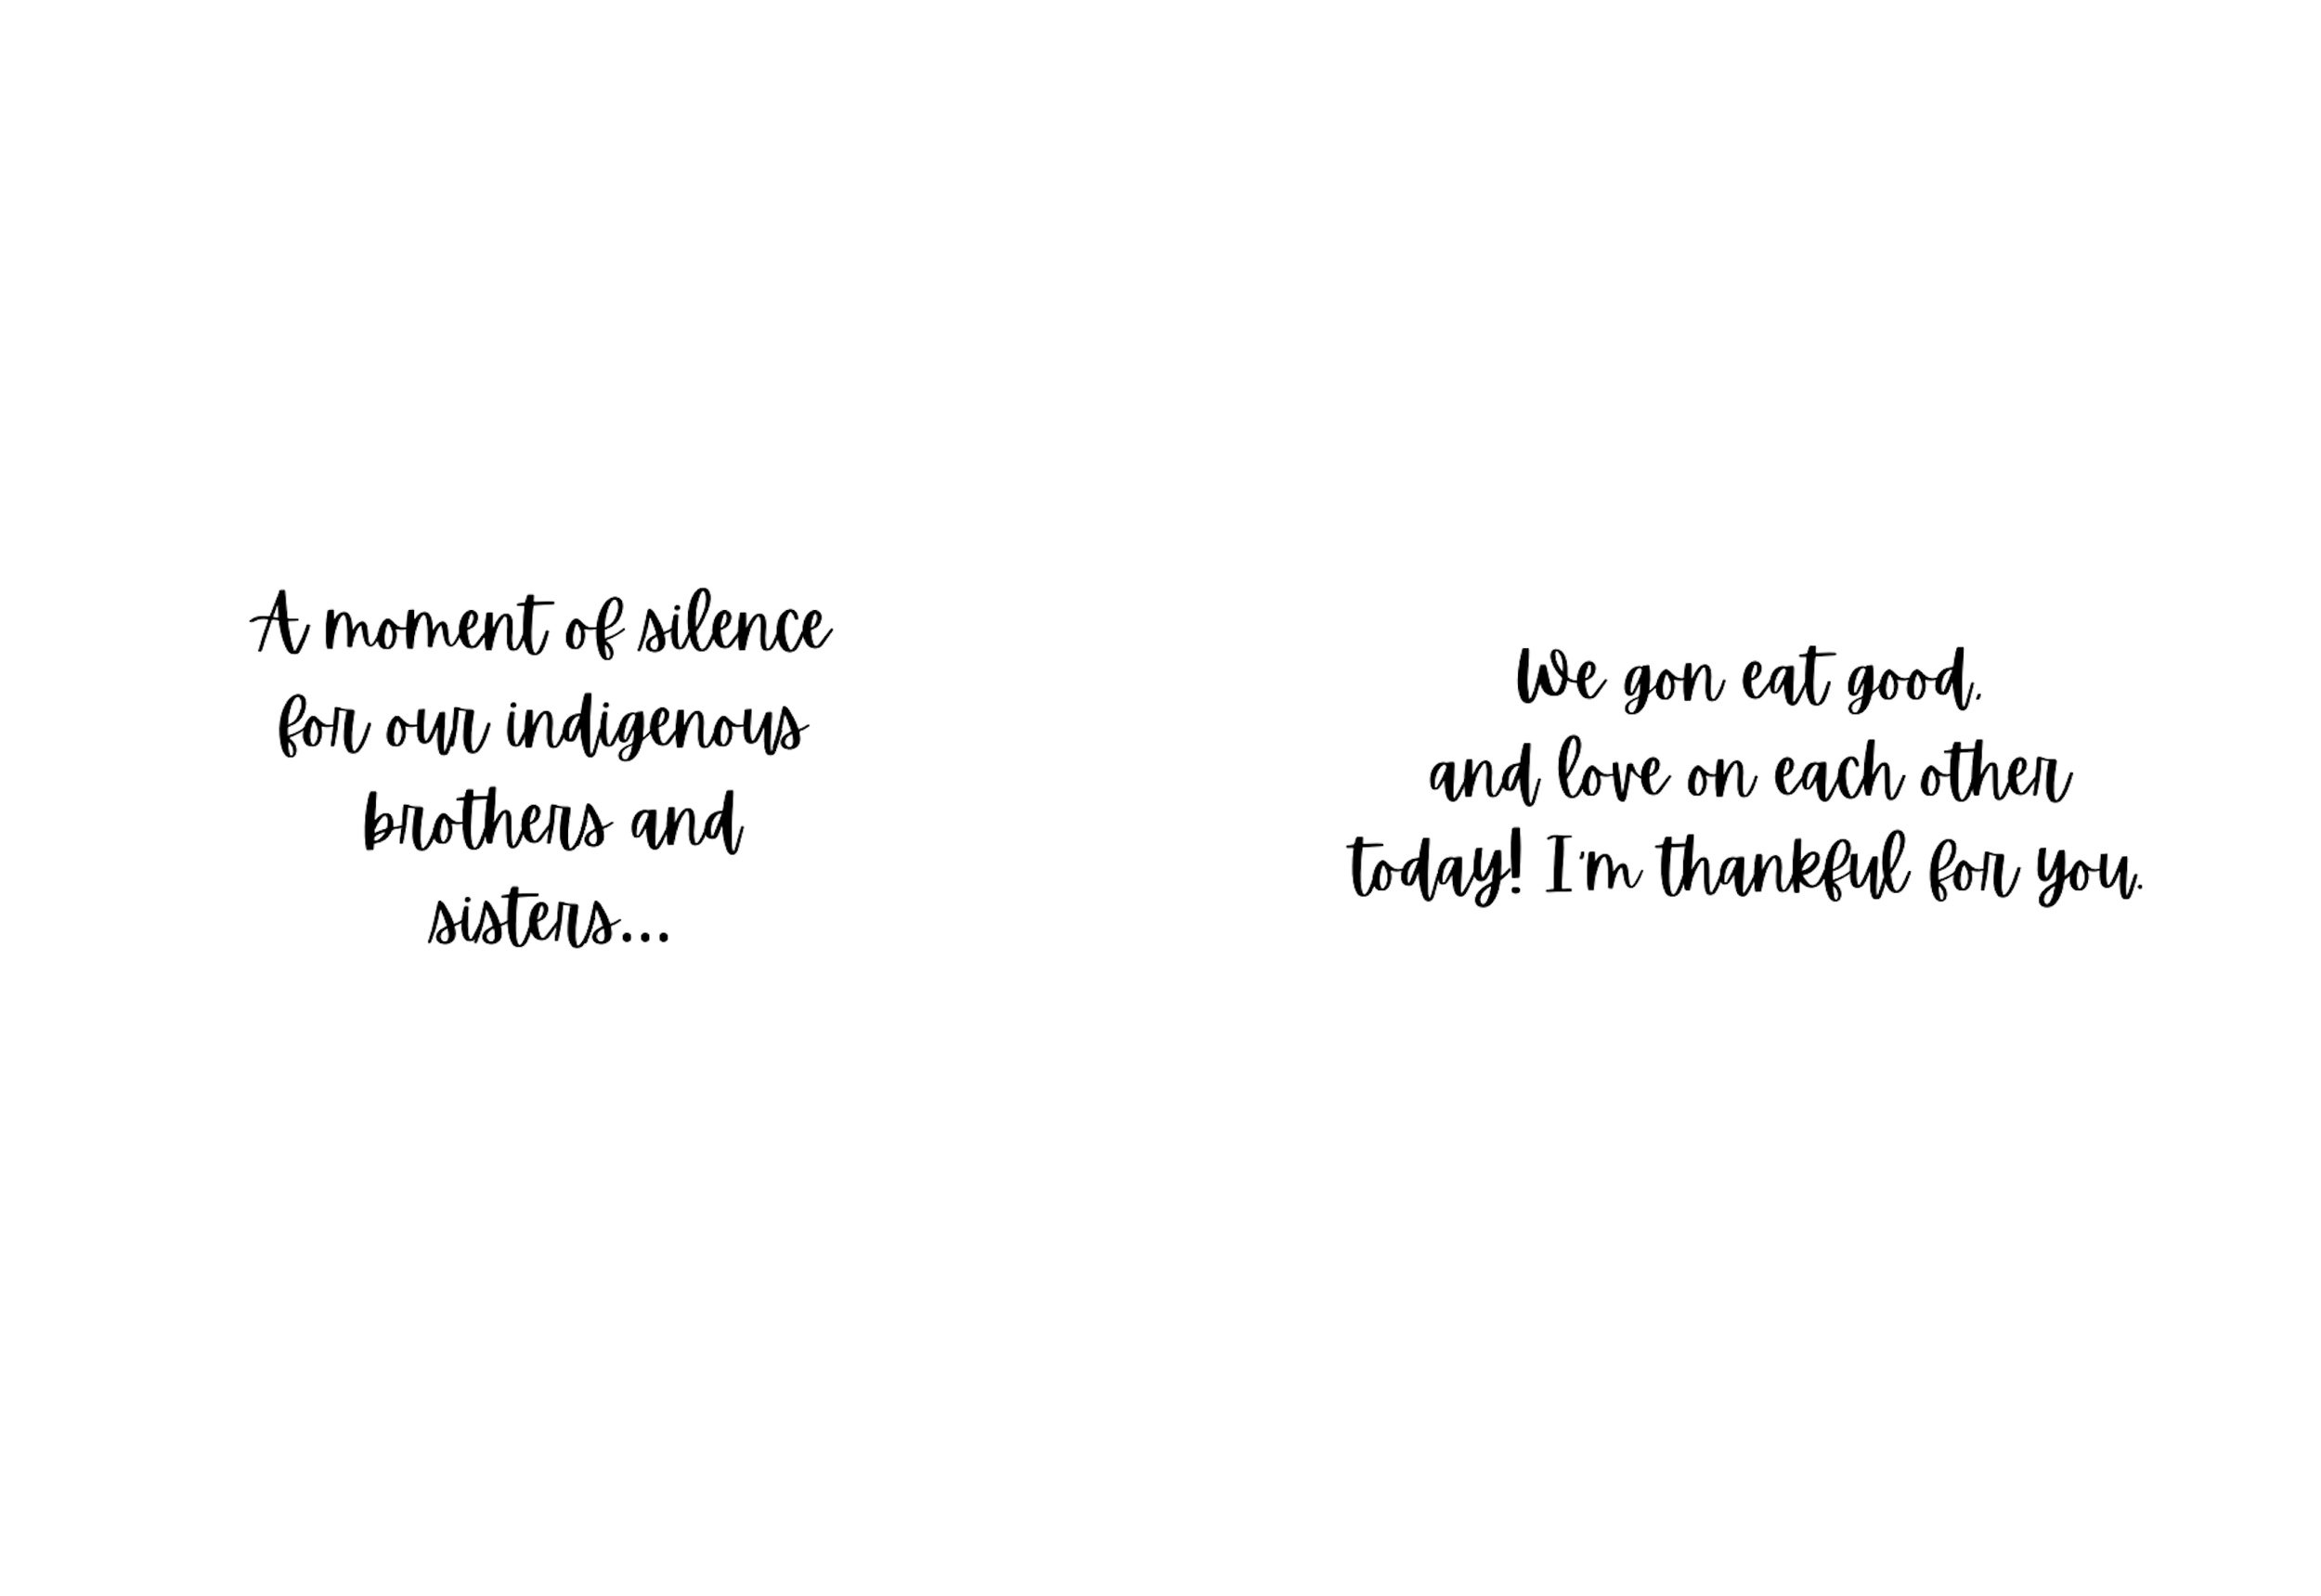 A moment of silence
for our indigenous
brothers and
sisters...
We gon eat good,
and love on each other
today! I'm thankful for you.